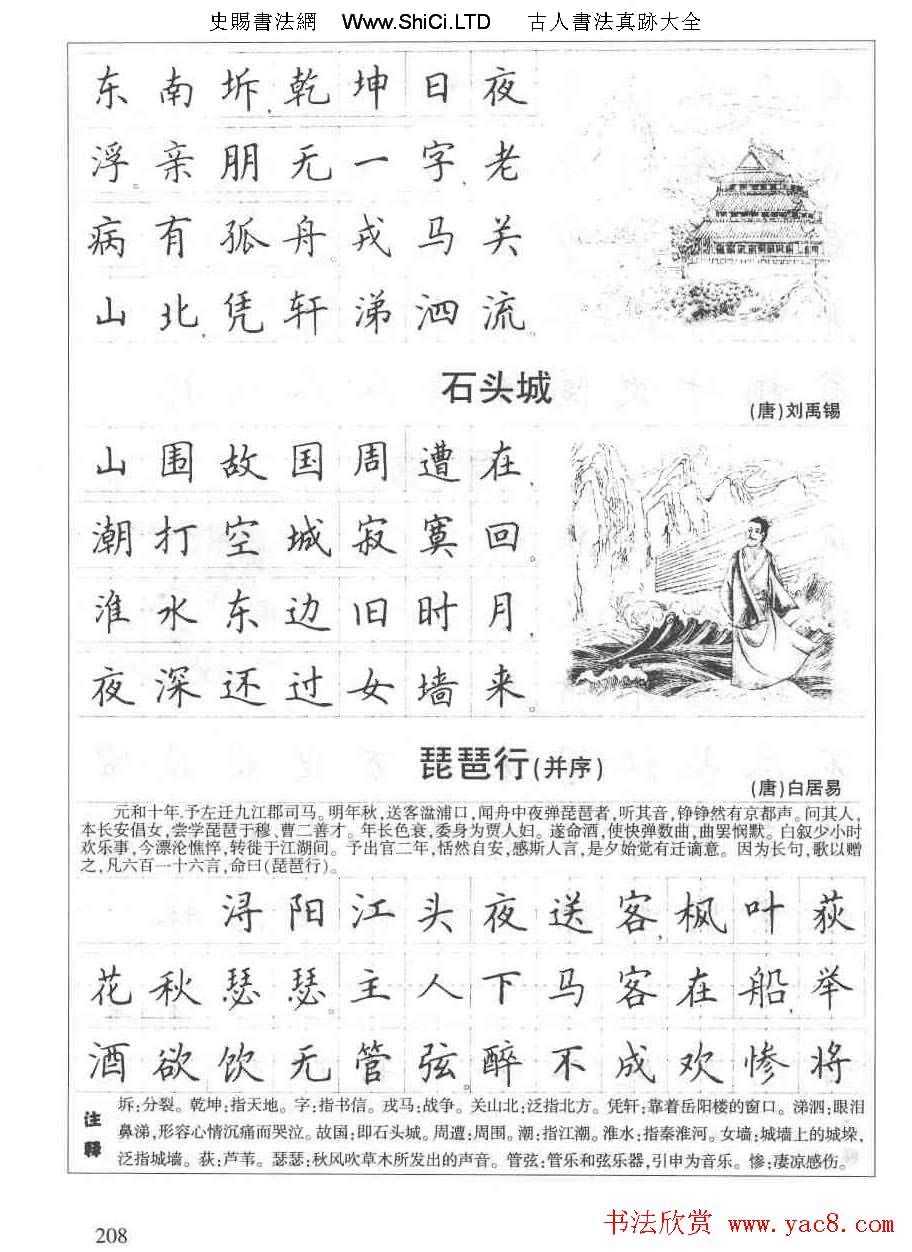 史賜書法網 www.ShiCi.LTD 古人書法真跡大全
东南坼,乾坤日夜
浮。亲朋无一字,老
病有孤舟。戎马关
山北,凭轩涕泗流。
石头城
(唐)刘禹锡
山围故国周遭在,
潮打空城寂寞回。
淮水东边旧时月,
夜深还过女墙来。
琵琶行(并序)
(唐)白居易
元和十年.予左迁九江郡司马。明年秋,送客湓浦口,闻舟中夜弹琵琶者,听其音,铮铮然有京都声。问其人,
本长安倡女,尝学琵琶于穆、曹二善才。年长色衰,委身为贾人妇。遂命酒,使快弹数曲,曲罢悯默。自叙少小时
欢乐事,今漂沦憔悴,转徙于江湖间。予出官二年,恬然自安,感斯人言,是夕始觉有迁谪意。因为长句,歌以赠
之,凡六百一十六言,命曰(琵琶行)。
浔阳江头夜送客,枫叶荻
花秋瑟瑟。主人下马客在船,举
酒欲饮无管弦。醉不成欢惨将
注释
坼:分裂。乾坤:指天地。字:指书信。戎马:战争。关山北:泛指北方。凭轩:靠着岳阳楼的窗口。涕泗:眼泪
鼻涕,形容心情沉痛而哭泣。故国:即石头城。周遭:周围。潮:指江潮。淮水:指秦淮河。女墙:城墙上的城垛,
泛指城墙。荻:芦苇。瑟瑟:秋风吹草木所发出的声音。管弦:管乐和弦乐器,引申为音乐。惨:凄凉感伤。
208
书法欣赏 www.yac8.com